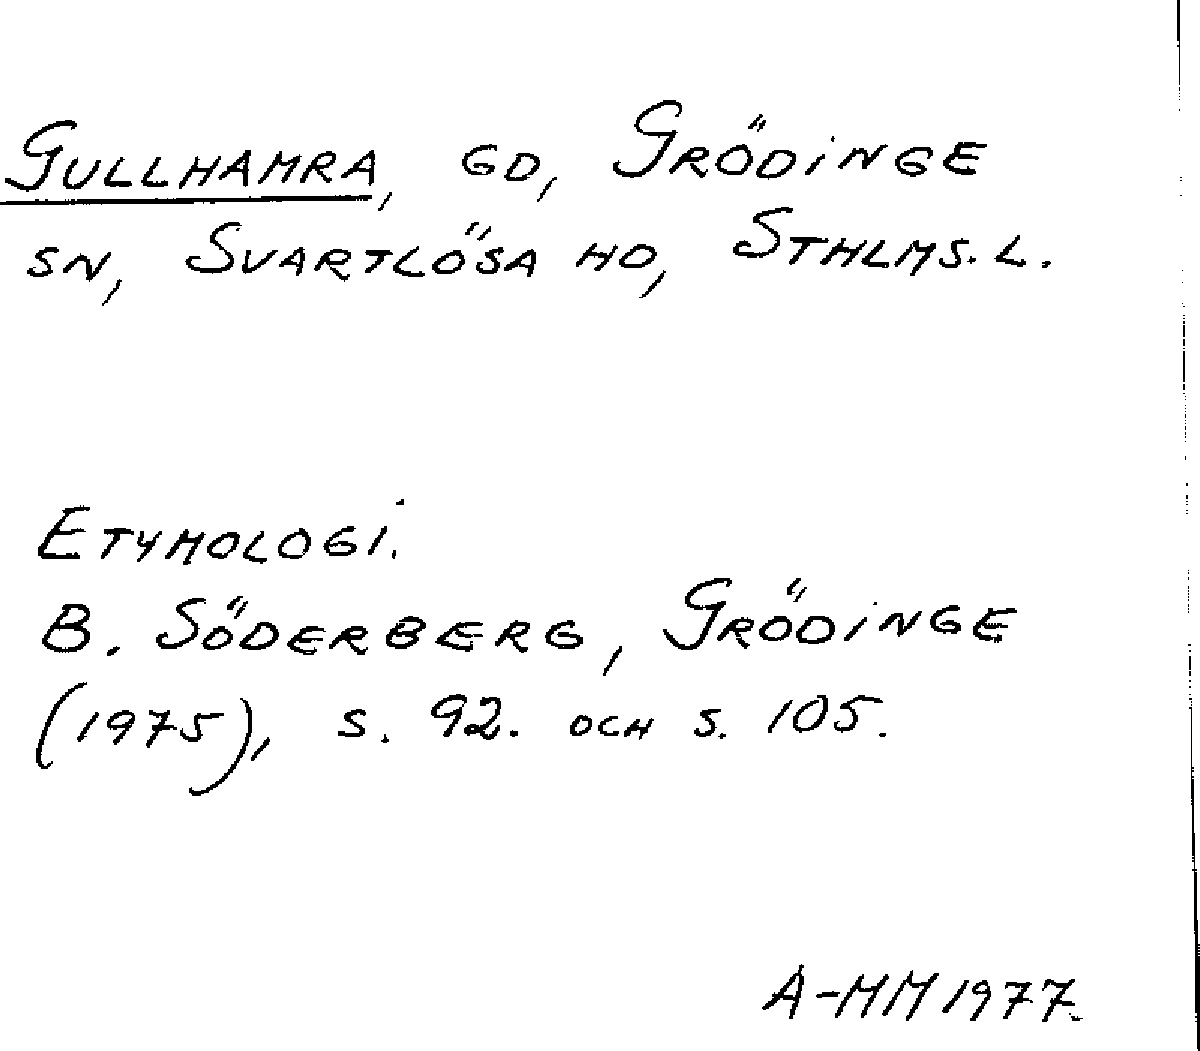 GULLHAMRA, GD, GRÖDINGE
SN, SVARTLÖSA HD, STHLMS. L.
ETYMOLOGI.
B. SÖDERBERG, GRÖDINGE
(1975), S. 92. OCH S. 105.
A-MM 1977.